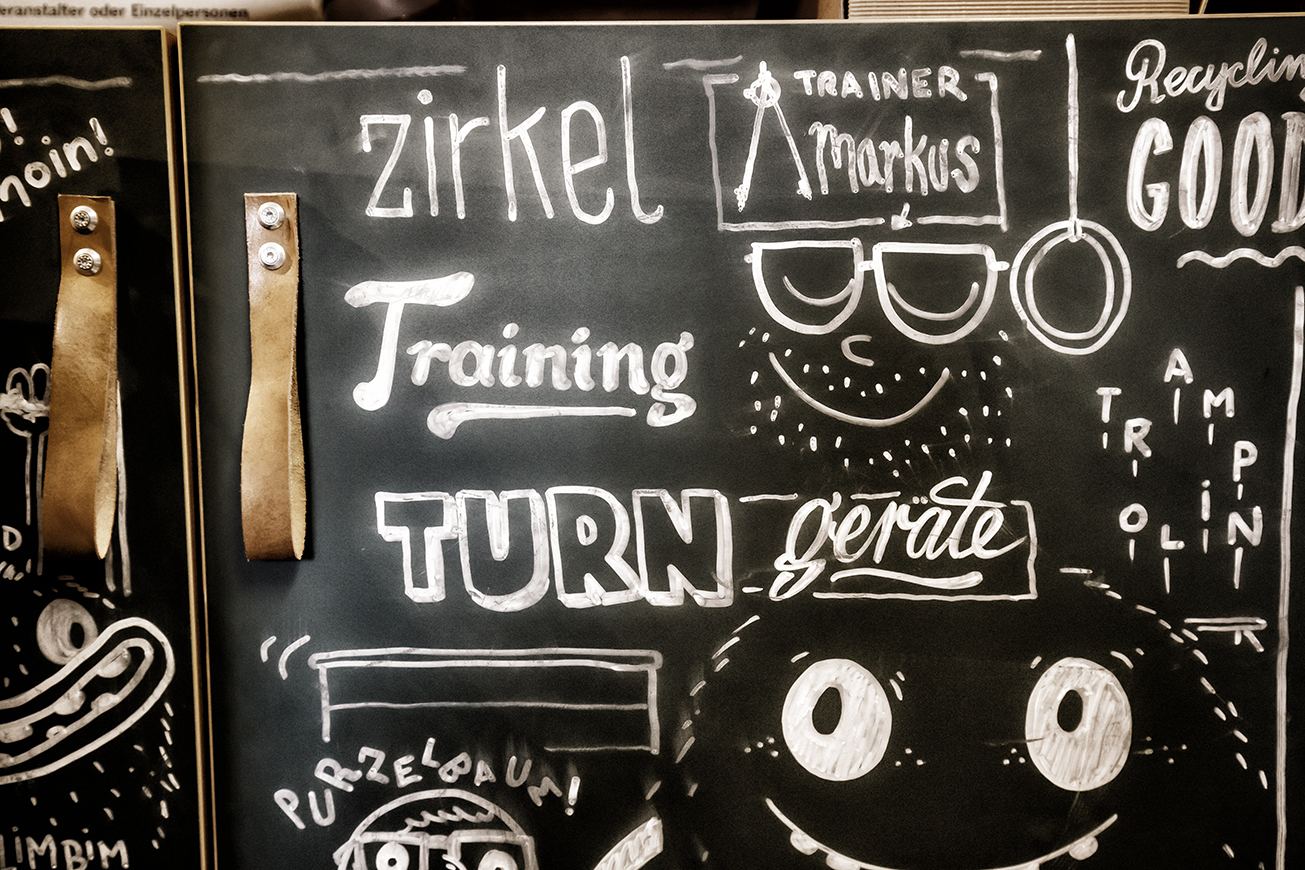 eranstalter oder Einzelpersonen
moin!
zirkel
TRAINER
markus
Recyclin
GOOD
Training
TRAMPOLIN
TURN geräte
PURZELBAUM!
LIMBIM